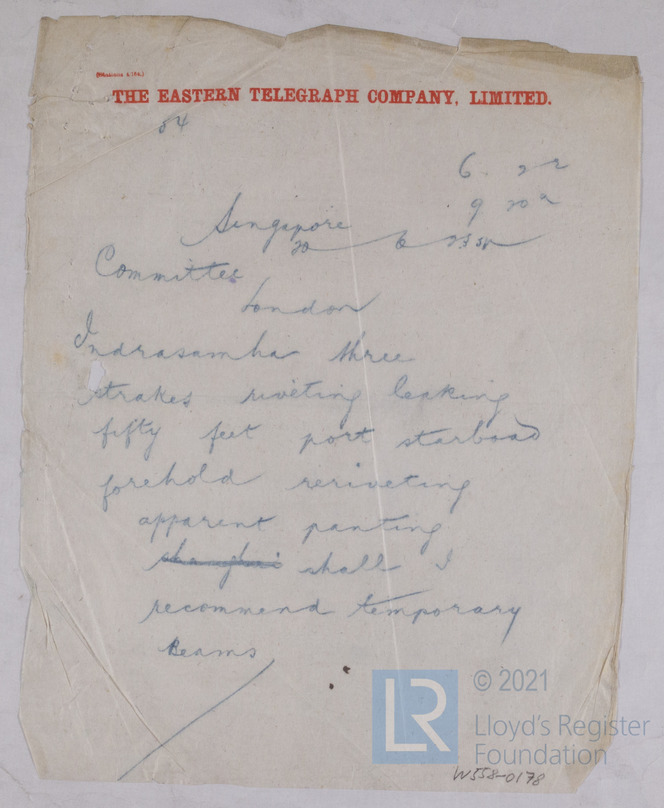 THE EASTERN TELEGRAPH COMPANY, LIMITED.
54
6.
9 20 a
Singapore
20 6
Committee
London
Indrasamha three
strakes riveting leaking
fifty feet port starboad
forehold reriveting
apparent panting
shanghai shall I
recommend temporary
Beams
LR
© 2021
Lloyd's Register
Foundation
W558-0178